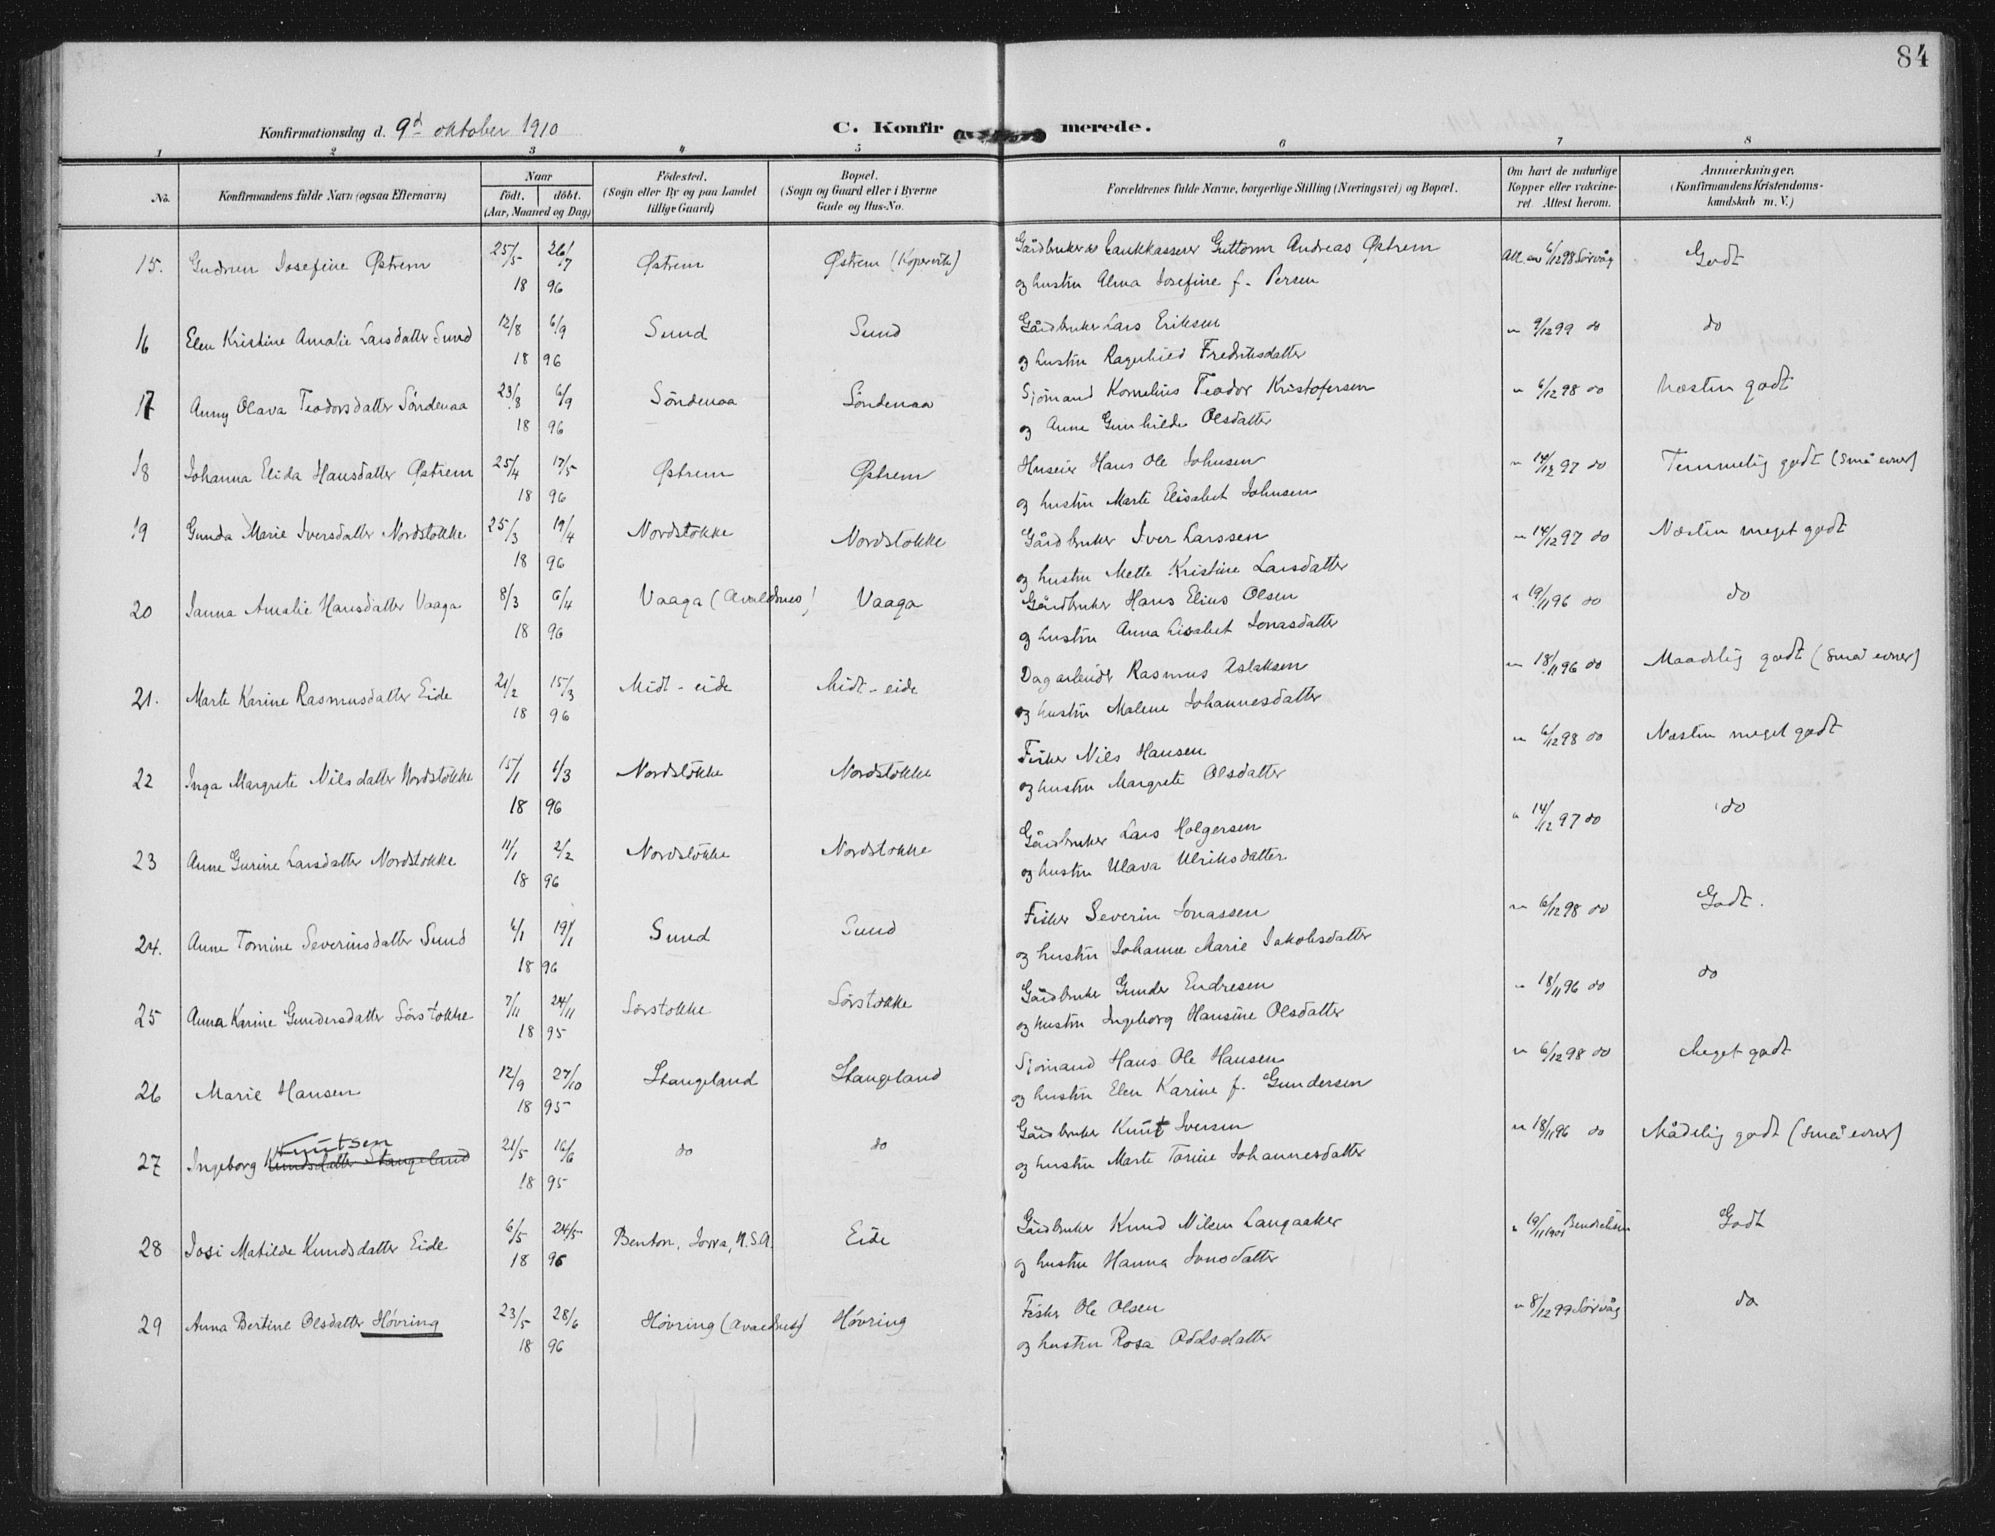 84
Konfirmationsdag d. 9d oktober 1910
C. Konfirmerede.
1 2 3 4 5 6 7 8
No. Konfirmandens fulde Navn (ogsaa Efternavn) Naar født. døbt. (Aar, Maaned og Dag) Fødested. (Sogn eller By og paa Landet tillige Gaard) Bopæl. (Sogn og Gaard eller i Byerne Gade og Hus-No. Forældrenes fulde Navne, borgerlige Stilling (Næringsvei) og Bopæl. Om havt de naturlige Kopper eller vakcineret. Attest herom. Anmærkninger. (Konfirmandens Kristendomskundskab m. V.)
15. Gudrun Josefine Østrem 25/5 26/7 Østrem Østrem (Kopervik) Gårdbruker & bankkasserer Guttorm Andreas Østrem Att. av 6/12 98 Sørvåg Godt
18 96 og hustru Alma Josefine f. Persen
16 Elen Kristine Amalie Larsdatter Sund 12/8 6/9 Sund Sund Gårdbruker Lars Eriksen " 9/12 99 do do
18 96 og hustru Ragnhild Fredriksdatter
17 Anny Olava Teodorsdatter Söndenaa 23/8 6/9 Söndenaa Söndenaa Sjömand Kornelius Teodor Kristofersen " 6/12 98 do Næsten godt
18 96 og Anne Gunhilde Olsdatter
18 Johanna Elida Hansdatter Østrem 25/4 17/5 Østrem Østrem Huseier Hans Ole Johnsen " 14/12 97 do Temmelig godt (små evner)
18 96 og hustru Marte Elisabet Johnsen
19 Gunda Marie Iversdatter Nordstokke 25/3 19/4 Nordstokke Nordstokke Gårdbruker Iver Larssen " 14/12 97 do Næsten meget godt
18 96 og hustru Mette Kristine Larsdatter
20 Janna Amalie Hansdatter Vaaga 8/3 6/4 Vaaga (Avaldsnes) Vaaga Gårdbruker Hans Elius Olsen " 19/11 96 do do
18 96 og hustru Anna Lisabet Jonasdatter
21. Marte Karine Rasmusdatter Eide 21/2 15/3 Midt-eide Midt-eide Dagarbeider Rasmus Aslaksen " 18/11 96 do Maadelig godt (små evner)
18 96 og hustru Malene Johannesdatter
22 Inga Margrete Nilsdatter Nordstokke 15/1 1/3 Nordstokke Nordstokke Fisker Nils Hansen " 6/12 98 do Næsten meget godt
18 96 og hustru Margrete Olsdatter
23 Anne Gurine Larsdatter Nordstokke 11/1 2/2 Nordstokke Nordstokke Gårdbruker Lars Holgersen " 14/12 97 do do
18 96 og hustru Ulava Ulriksdatter
24. Anne Tomine Severinsdatter Sund 6/1 19/1 Sund Sund Fisker Severin Jonassen " 6/12 98 do Godt.
18 96 og hustru Johanne Marie Jakobsdatter
25 Anna Karine Gundersdatter Sörstokke 7/11 24/11 Sörstokke Sörstokke Gårdbruker Gunder Endresen " 18/11 96 do do
18 95 og hustru Ingeborg Hansine Olsdatter
26 Marie Hansen 12/9 27/10 Stangeland Stangeland Sjömand Hans Ole Hansen " 6/12 98 do Meget godt
18 95 og hustru Elen Karine f. Gundersen
Knutsen
27 Ingeborg Knudsdatter Stangeland 21/5 16/6 do do Gårdbruker Knut Iversen " 18/11 96 do Mådelig godt (små evner)
18 95 og hustru Marte Tomine Johannesdatter
28 Josi Matilde Knudsdatter Eide 6/5 24/5 Benton, Iowa, N.S.A. Eide Gårdbruker Knud Langaaker " 19/11 1901 Godt
18 96 og hustru Hanna Jonsdatter
29 Anna Bertine Olsdatter Høvring 23/5 28/6 Høvring (Avaldsnes) Høvring Fisker Ole Olsen " 8/12 99 Sørvåg do
18 96 og hustru Rosa Oddsdatter